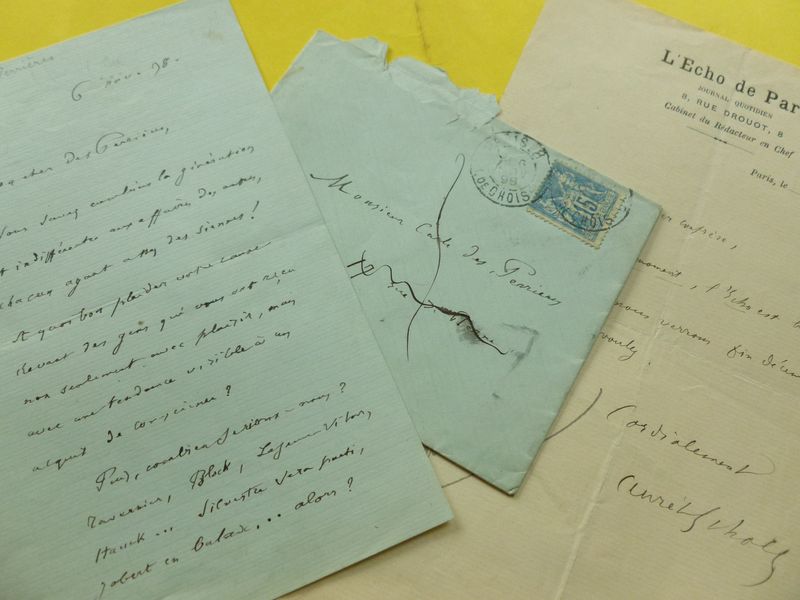 errières
6 nov. 98.
cher des Perrières,
vous savez combien la génération
est indifférente aux affaires des autres,
chacun ayant assez des siennes !
A quoi bon plaider votre cause
devant des gens qui vous ont reçu
non seulement avec plaisir, mais
avec une tendance visible à un
acquit de conscience ?
Puis, combien serions-nous ?
Tavernier, Block,
Hauck... Silvestre sera parti,
Robert en balade... alors ?
Monsieur Carle des Perrières
rue
15
DE CHOIS
L'Echo de Par
JOURNAL QUOTIDIEN
8, RUE DROUOT, 8
Cabinet du Rédacteur en Chef
Paris, le
er confrère,
moment, l'Echo est
nous verrons fin décem
voulez.
Cordialement
Aurél Scholl